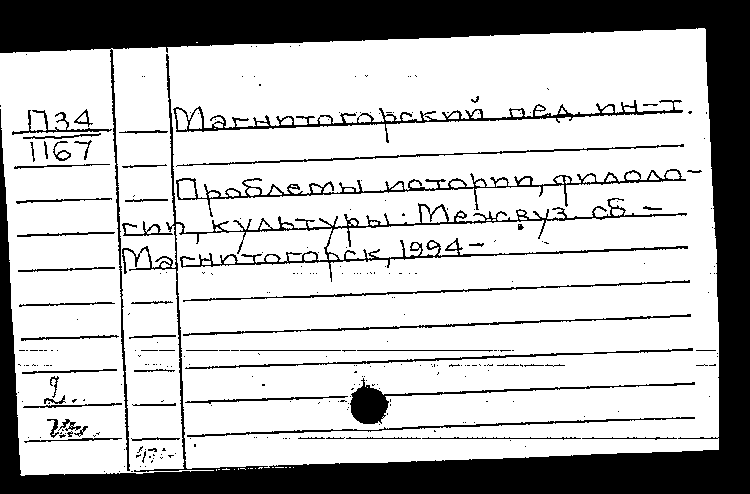 П34
П67
Магнитогорский пед. ин-т.
Проблемы истории, филоло-
гии, культуры: Межвуз. сб. –
Магнитогорск, 1994–
2.